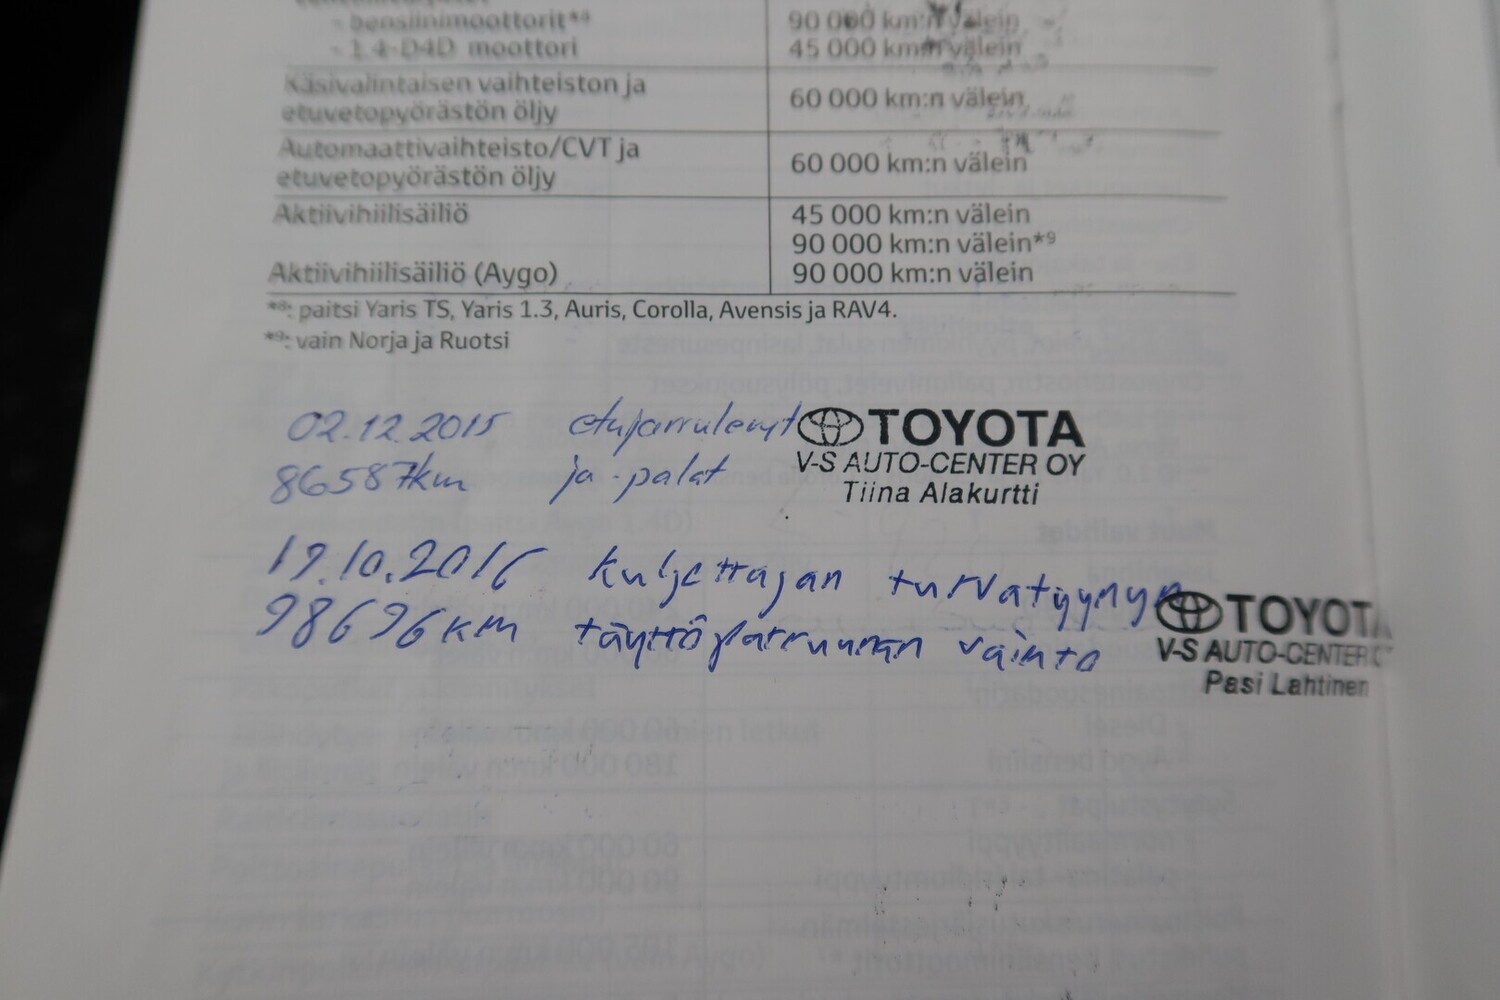 - bensiinimoottorit*⁸ 90 000 km:n välein
- 1.4-D4D moottori 45 000 km:n välein
Käsivalintaisen vaihteiston ja
etuvetopyörästön öljy 60 000 km:n välein
Automaattivaihteisto/CVT ja
etuvetopyörästön öljy 60 000 km:n välein
Aktiivihiilisäiliö 45 000 km:n välein
90 000 km:n välein*⁹
Aktiivihiilisäiliö (Aygo) 90 000 km:n välein
*⁸: paitsi Yaris TS, Yaris 1.3, Auris, Corolla, Avensis ja RAV4.
*⁹: vain Norja ja Ruotsi
02.12.2015 etujarrulevyt TOYOTA
86587km ja -palat V-S AUTO-CENTER OY
Tiina Alakurtti
19.10.2016 Kuljettajan turvatyynyn TOYOTA
98696km täyttöpatruunan vaihto V-S AUTO-CENTER
Pasi Lahtinen